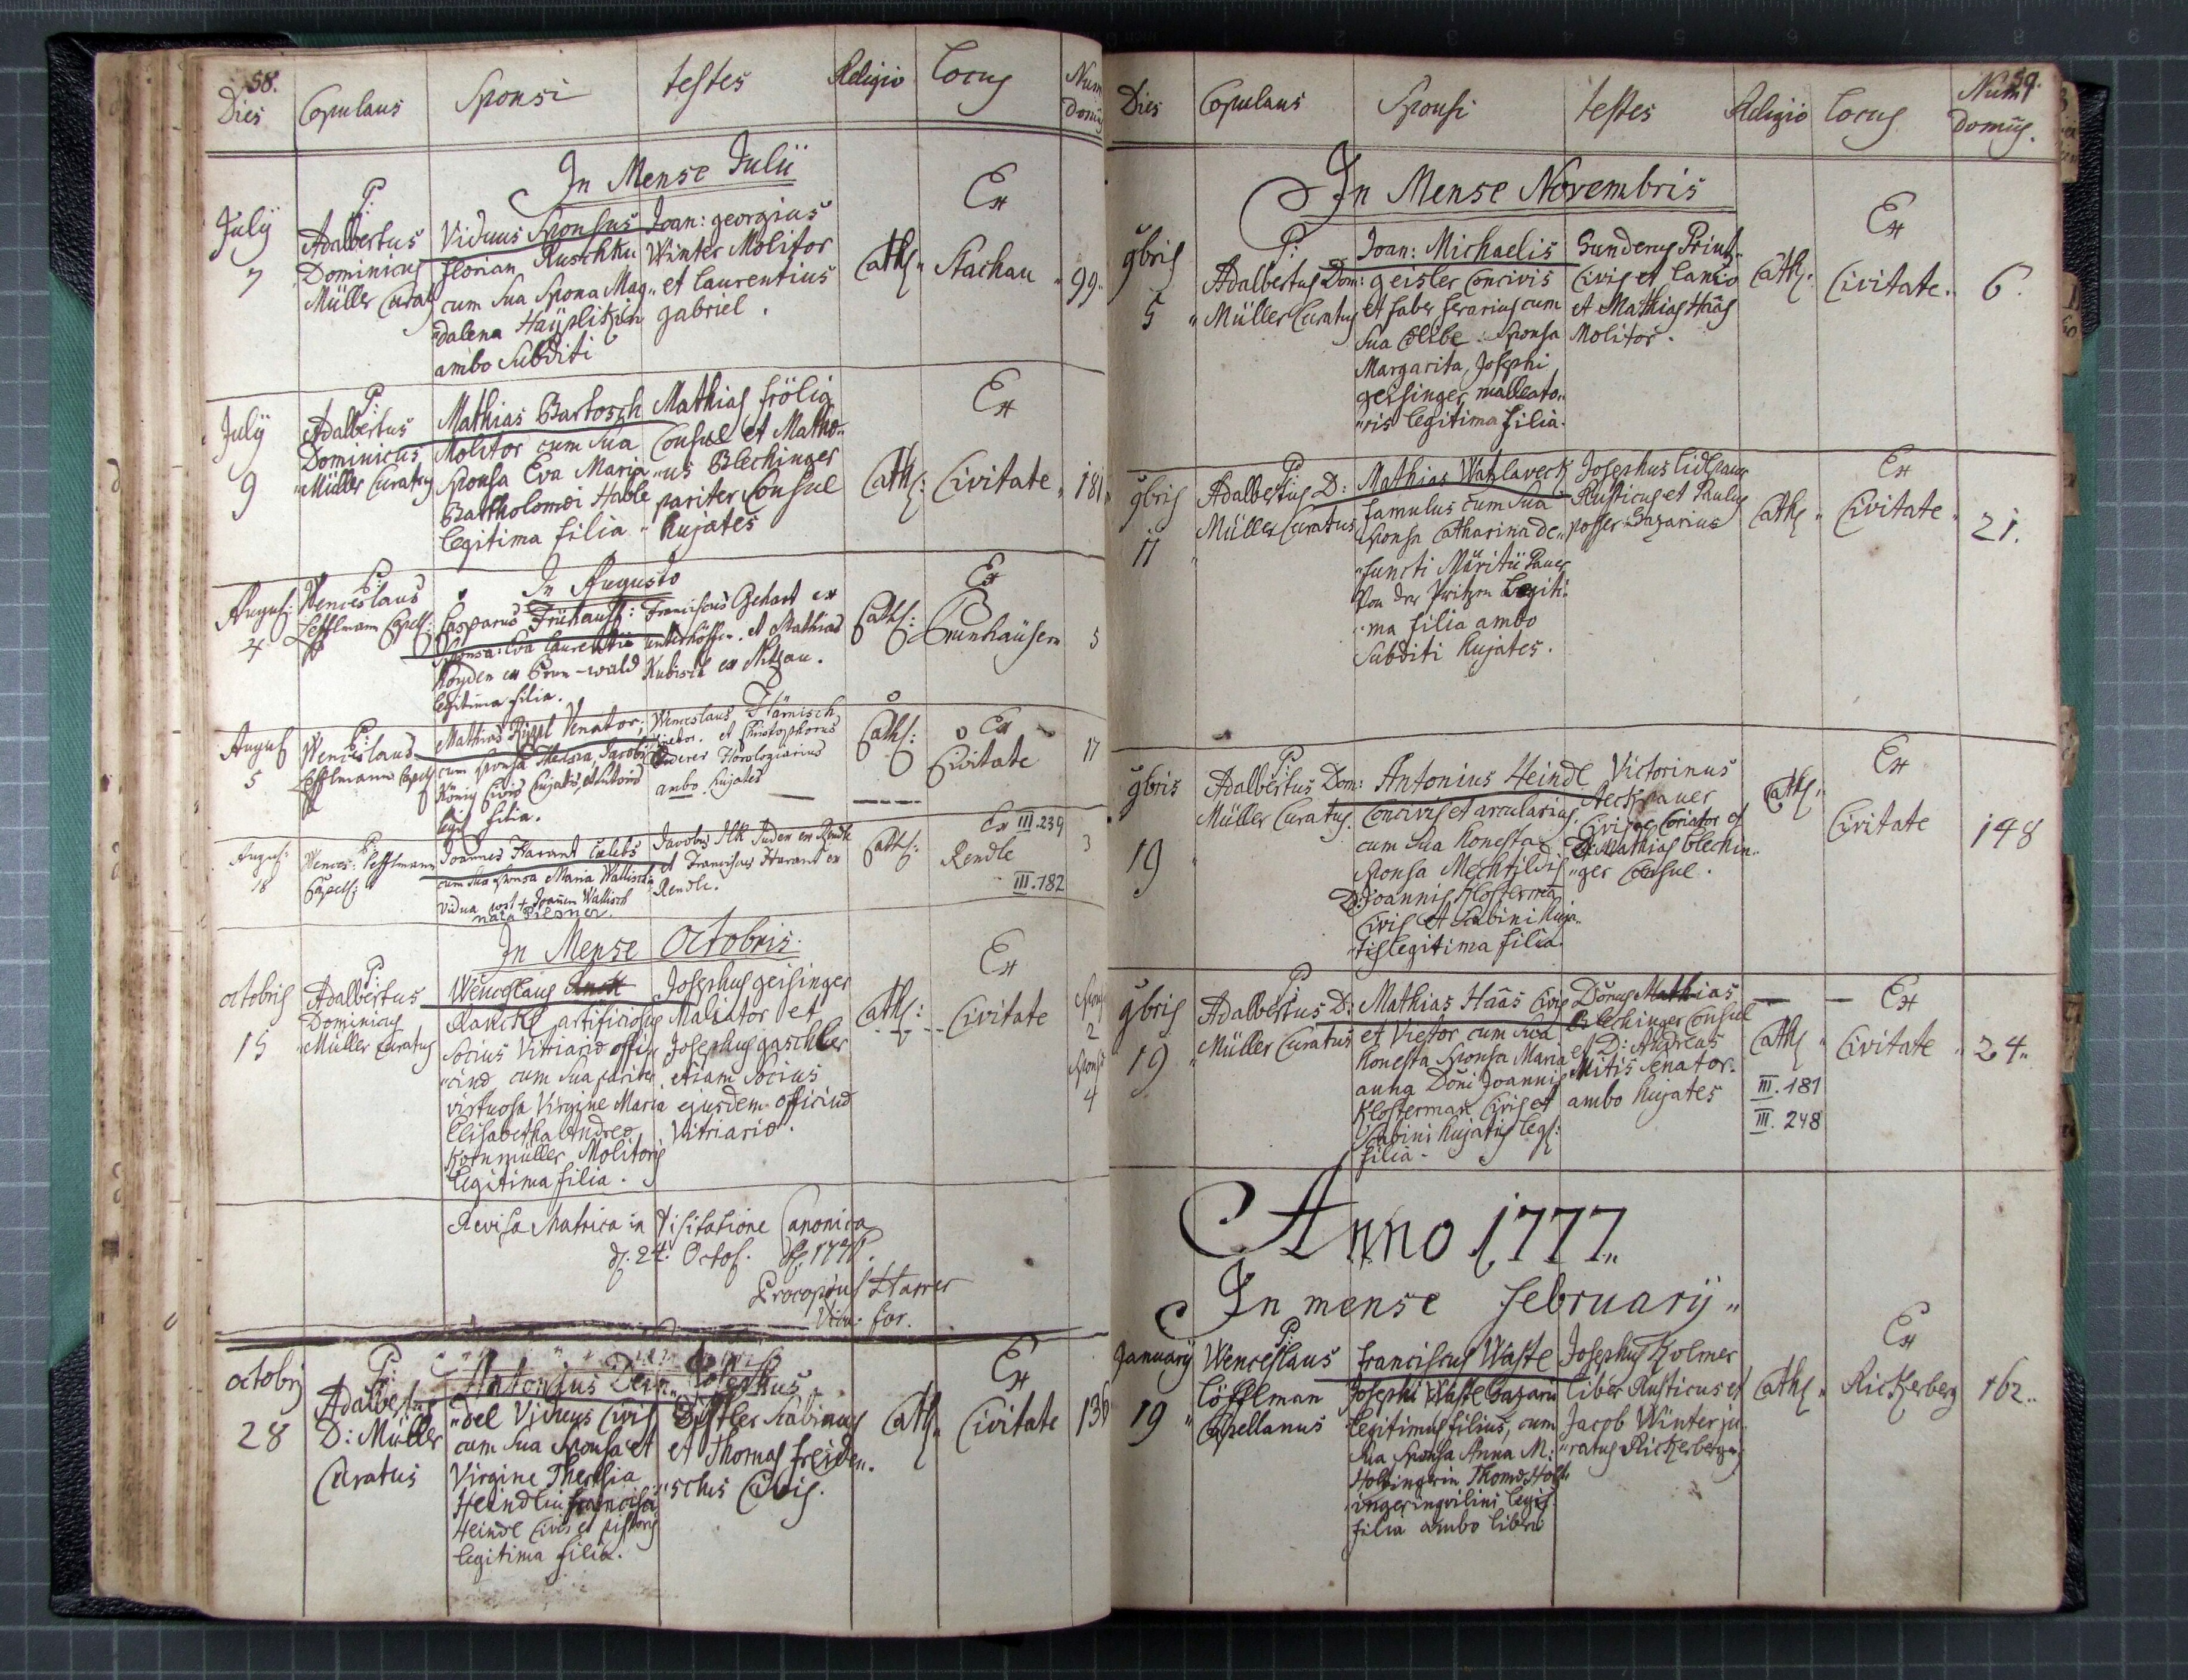 58.
Dies Copulans Sponsi testes Religio Locus Num Domus
In Mense Julii
July 7
P:
Adalbertus
Dominicus
Müller Curat
Viduus Sponsus
Florian Ruschku
cum Sua Spona Mag„
„dalena
ambo Subditi
Joan: georgius
Winter Molitor
et Laurentius
gabriel.
Cath„
Ex
Stachau „
99„
July 9
P:
Adalbertus
Dominicus
„Müller Curatus
Mathias Bartosch
Molitor cum Sua
Sponsa Eva Maria
Bartholomæi Hable
legitima filia „
Mathias frölig
Consul et Mathæ„
„us Blechinger
pariter Consul
hujates
Cath:
Ex
Civitate „
181„
In Augusto
August: 4
P:
Wenceslaus
Lefflmann Capell:
Casparus Frühauff:
Sponsa: Eva Laurentii
Royden ex Brun-wald
legitima filia.
Franciscus Gehart ex
et Mathias
Kubisch ex Nitzau.
Cath:
Ex
Brunhäusern
5
August 5
P:
Wenceslaus
Lefflmann Capell
Mathias Rippl Venator,
cum sponsa Theresia, Jacobi
König Civis hujatis,
legit filia.
Wenceslaus Härnisch
et Christophorus
Horologiarius
ambo hujates
Cath:
Ex
Civitate
17
August: 18
P:
Wences: Lefflmann
Capell:
Joannes Harant Cælebs
cum sua sponsa Maria Wallischin
Vidua post + Joañem Wallisch
nata Pilsner.
Jacobus
et Franciscus Harant ex
Rendle.
Cath:
Ex III.239
Rendle
III.182
3
In Mense Octobris.
octobris 15
P:
Adalbertus
Dominicus
„Müller Curatus
Wenceslaus
Ranckl artificiosus
Socius Vitriariæ offi„
„cinæ cum Sua pariter
virtuosa Virgine Maria
Elisabetha Andreæ
Kornmüller Molitoris
legitima filia.
Josephus geisinger
Maliator et
Josephus gaschler
etiam Socius
ejusdem officinæ
Vitriariæ.
Cath:
Ex
Civitate
2
4
Revisa Matrica in Visitatione Canonica
d. 24. Octob. 1776.
Procopius Harrer
Vica: for.
octobris 28
P:
Adalbertus
D: Müller
Curatus
Antonius Dein„
„del Viduus Civis
cum Sua Sponsa et
Virgine Theresia
Heindlin francisci
Heindl Civis et pistoris
legitima filia.
Josephus
Distler Scabinus
et Thomas freiden„
„schus Civis.
Cath„
Ex
Civitate
136
59.
Dies Copulans Sponsi testes Religio Locus Num Domus.
In Mense Novembris
9bris 5
P:
Adalbertus Dom:
„Müller Curatus
Joan: Michaelis
geisler Concivis
et faber ferarius cum
Sua Cælibe Sponsa
Margarita, Josephi
geisinger malleato„
„ris legitima filia.
Sunderus Printz
Civis et lanio
et Mathias Haas
Molitor.
Cath:
Ex
Civitate.
6.
9bris 11
P:
Adalbertus D:
Müller Curatus
Mathias Watzlaveck
famulus cum Sua
Sponsa Catharina de„
„functi Pauer
Von der Pritzen legiti„
„ma filia ambo
Subditi hujates.
Josephus
Rusticus et Paulus
posser Gazarius
Cath „
Ex
Civitate „
21.
9bris 19
P:
Adalbertus Dom:
Müller Curatus.
Antonius Heindl
Concivis et arcularius,
cum Sua honesta
Sponsa Mechtildis
D: Joannis Klosterman
Civis et Scabini huja„
„tis legitima filia.
Victorinus
Aeckpauer
Civis et Coriator et
D: Mathias blechin„
„ger Consul.
Cath„
Ex
Civitate
148
9bris 19
P:
Adalbertus D:
Müller Curatus
Mathias Haas Civis
et Vietor cum Sua
honesta Sponsa Maria
anna Domi Joannis
Klosterman Civis et
Scabini hujatis leg:
filia.
Donus Mathias
Blechinger Consul
et D: Andreas
Mitis Senator.
ambo hujates
Cath „
III.181
III.248
Ex
Civitate „
24„
Anno 1777„
In mense February„
January 19
P:
Wenceslaus
Löfflman
Capellanus
franciscus Waste
Josephi Waste Gazarii
legitimus filius, cum
sua Sponsa Anna M:
Holzingerin Thomæ Holz
inger inquilini legit:
filia ambo liberi
Josephus Holmer
liber Rusticus et
Jacob Winter ju„
„ratus Rickerberg„
Cath „
Ex
Rickerberg
162„